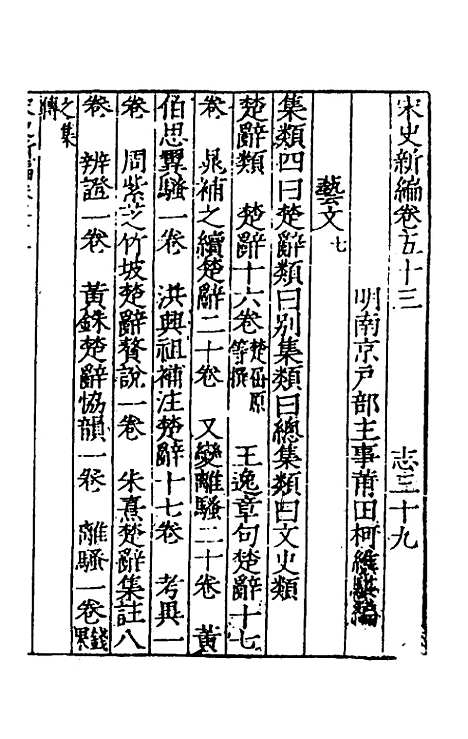 宋史新編卷五十三 志三十九
明南京戶部主事莆田柯維騏編
藝文七
集類四曰楚辭類曰別集類曰總集類曰文史類
楚辭類 楚辭十六卷楚屈原等撰 王逸章句楚辭十七
卷 晁補之續楚辭二十卷 又變離騷二十卷 黃
伯思翼騷一卷 洪興祖補注楚辭十七卷 考異一
卷 周紫芝竹坡楚辭贅說一卷 朱熹楚辭集註八
卷 辨證一卷 黃銖楚辭協韻一卷 離騷一卷錢杲
之集傳